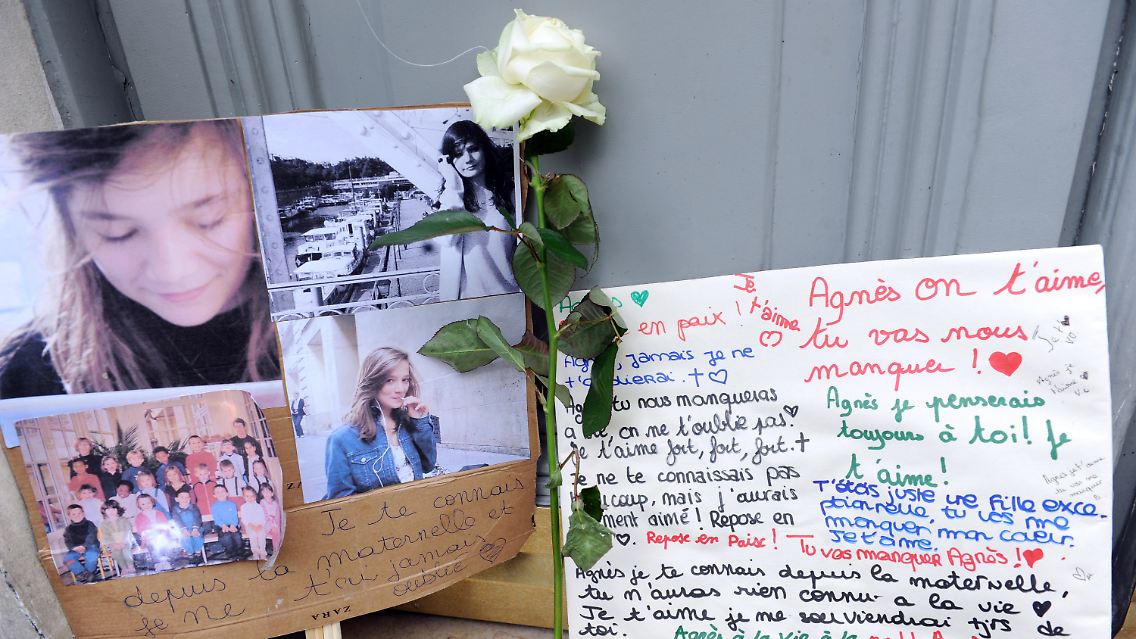 Je te connais
depuis ta maternelle et
je ne t'ai jamais
oublié
ZARA
ZARA
Je
t'aime
en paix !
Agnès, jamais je ne
t'oublierai. †
Agnès tu nous manqueras
on ne t'oublie pas.
je t'aime fort, fort, fort. †
Je ne te connaissais pas
beaucoup, mais j'aurais
aimé ! Repose en
Repose en Paix ! — Tu vas manquer Agnès !
Agnès je te connais depuis la maternelle,
tu n'auras rien connu a la vie
Je t'aime je me souviendrai tjrs de
toi.
Agnès on t'aime,
tu vas nous
manquer !
Agnès je penserais
toujours à toi ! Je
t'aime !
T'étais juste une fille exce-
ptionnelle, tu vas me
manquer mon cœur.
Je t'aime.
Je
t'aime
Agnès je
t'aime
Agnès je t'aime
tu vas me
manquer
Agnès à la vie à la